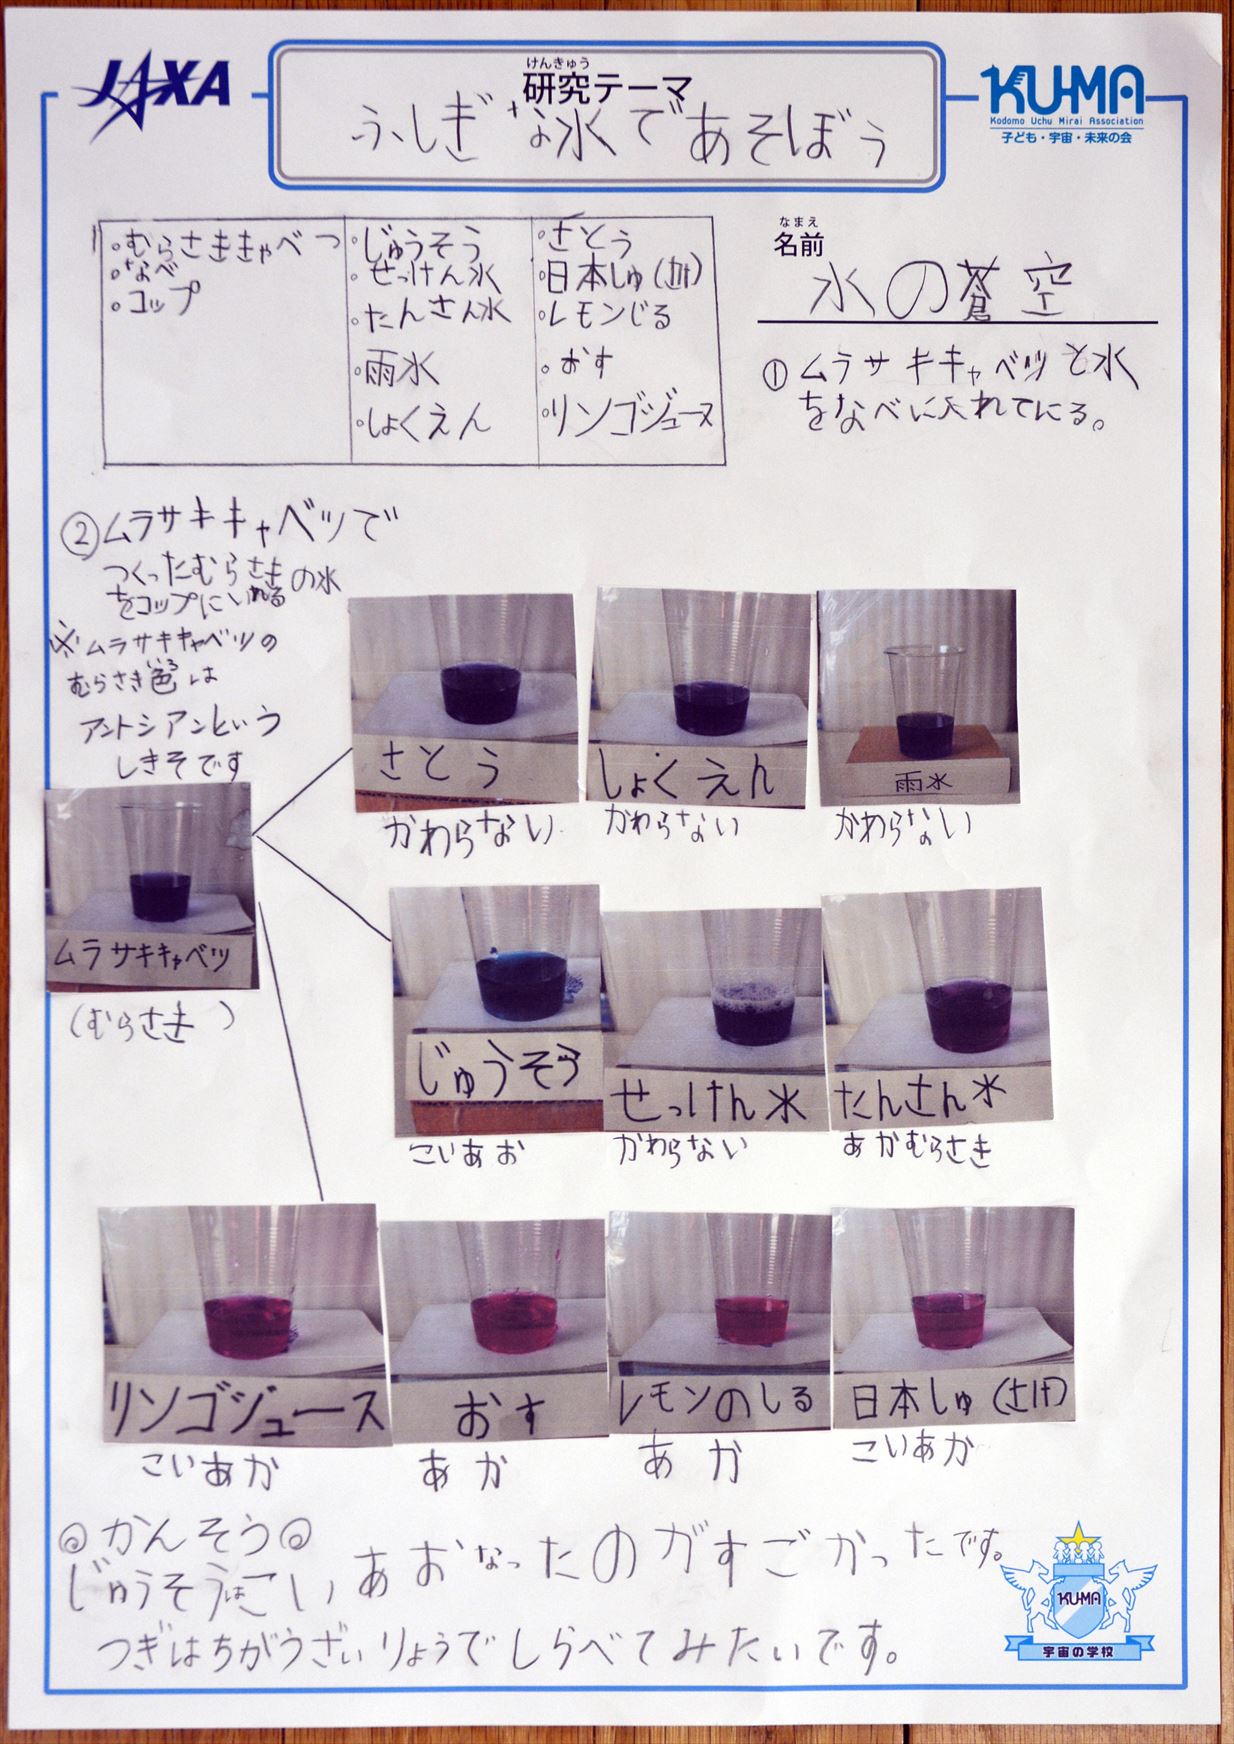 JAXA
けんきゅう
研究テーマ
ふしぎな水であそぼう
KU-MA
Kodomo Uchu Mirai Association
子ども・宇宙・未来の会
。むらさききゃべつ
。なべ
。コップ
。じゅうそう
。せっけん水
。たんさん水
。雨水
。しょくえん
。さとう
。日本しゅ(さけ)
。レモンじる
。おす
。リンゴジュース
なまえ
名前
水の蒼空
①ムラサキキャベツと水
をなべに入れてにる。
②ムラサキキャベツで
つくったむらさきの水
をコップにいれる
※ムラサキキャベツの
いろ
むらさき色は
アントシアンという
しきそです
ムラサキキャベツ
(むらさき)
さとう
かわらない
しょくえん
かわらない
雨水
かわらない
じゅうそう
こいあお
せっけん水
かわらない
たんさん水
あかむらさき
リンゴジュース
こいあか
おす
あか
レモンのしる
あか
日本しゅ(さけ)
こいあか
◎かんそう◎
じゅうそうはこいあおなったのがすごかったです。
つぎはちがうざいりょうでしらべてみたいです。
KU-MA
宇宙の学校